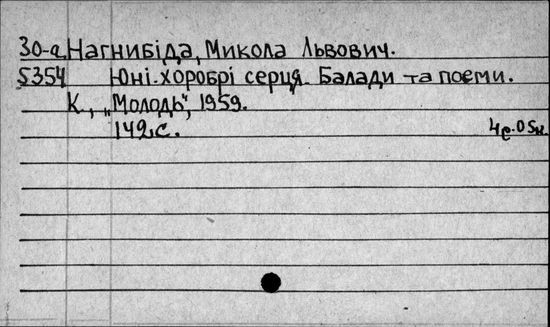 30-а Нагнибіда, Микола Львович.
5354 Юні хоробрі серця. Балади та поеми.
К., „Молодь", 1959.
142 с. 4р. 05к.